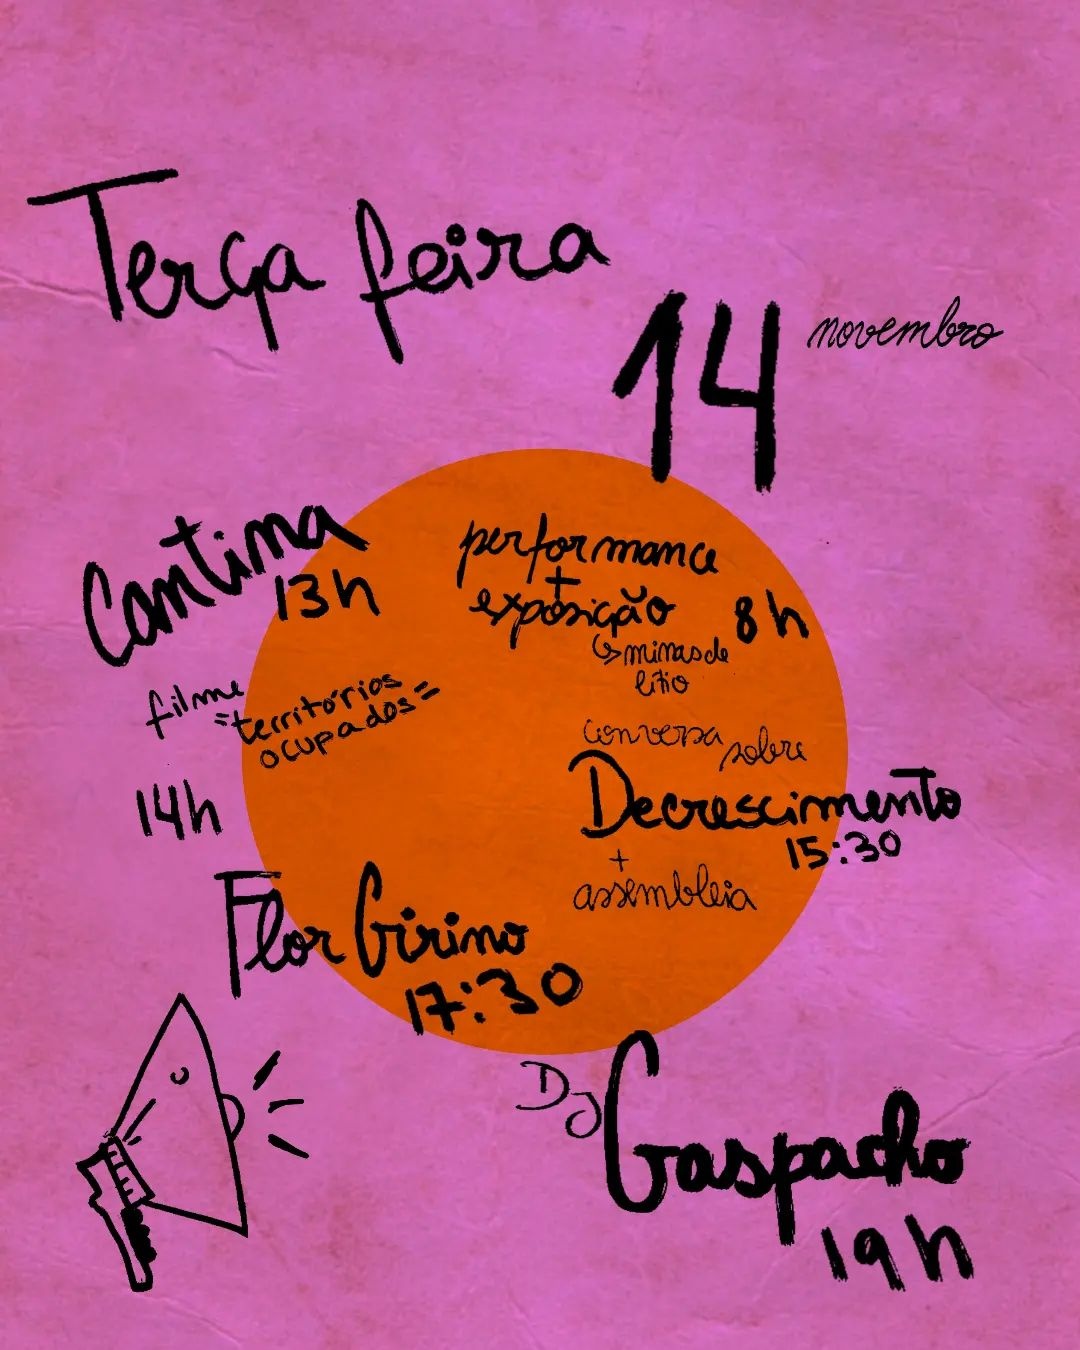 Terça feira
14 novembro
Cantina
13h
performance
+
exposição 8h
↳ minas de
lítio
filme
"territórios
ocupados"
14h
conversa sobre
Decrescimento
15:30
+
assembleia
Flor Girino
17:30
DJ Gaspacho
19h